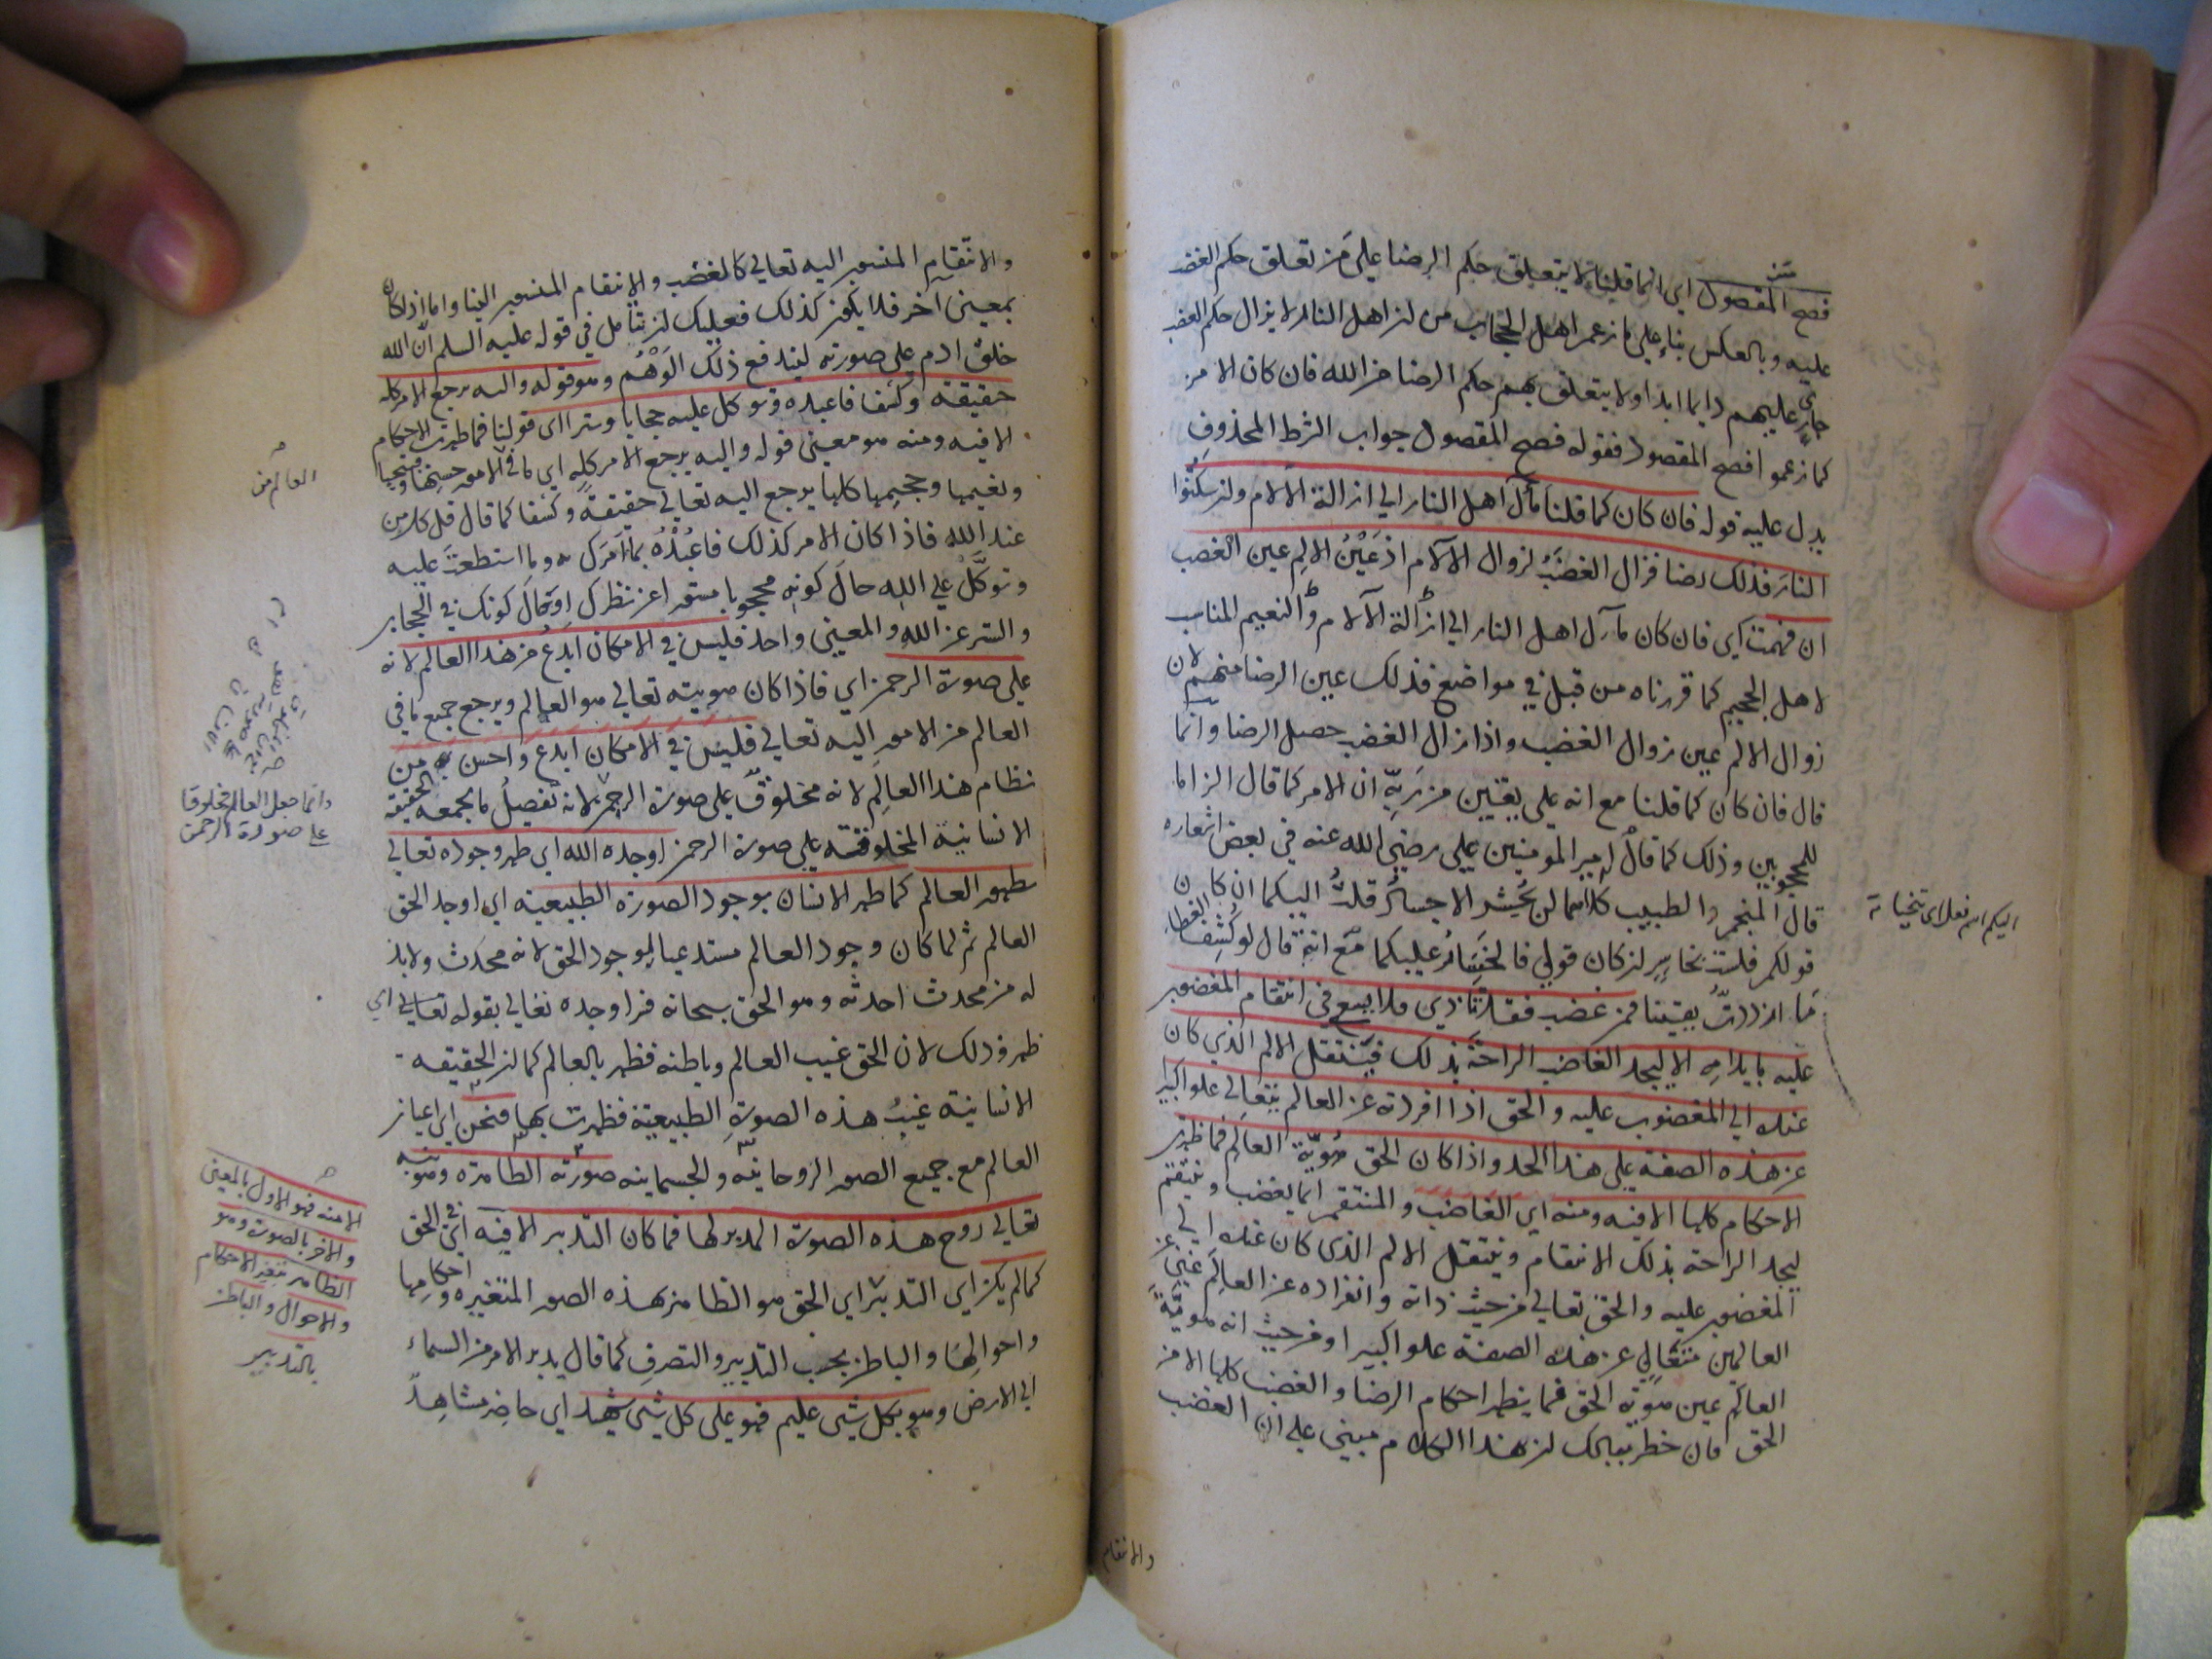 متن
فصح المقصول اى انما قلنا لا يتعلق حكم الرضا على من تعلق حكم الغضب
عليه وبالعكس بناء على ما زعم اهل الحجاب من ان اهل النار لا يزال حكم الغضب
جارٍ عليهم دايما ابدا ولا يتعلق بهم حكم الرضا من الله فان كان الامر
كما زعموا فصح المقصود فقوله فصح المقصول جواب الشرط المحذوف
يدل عليه قوله فان كان كما قلنا مآل اهل النار الى ازالة الآلام وان سكنوا
النار فذلك رضا فزال الغضب لزوال الآلام اذ عين الالم عين الغضب
ان فهمت اى فان كان مآل اهل النار الى ازالة الآلام والنعيم المناسب
لاهل الجحيم كما قررناه من قبل في مواضع فذلك عين الرضا منهم لان
زوال الالم عين زوال الغضب واذا زال الغضب حصل الرضا وانما
قال فان كان كما قلنا مع انه على يقين من ربه ان الامر كما قال الزاما
للمحجوبين وذلك كما قال امير المومنين على رضى الله عنه في بعض اشعاره
قال المنجم والطبيب كلاهما لن يحشر الاجساد قلت اليكما ان كان
قولكم فلست بخاسر ان كان قولي فالخسار عليكما مع انه قال لو كشف الغطا
ما ازددت يقينا فمن غضب فقد تاذى فلا يسعى في انتقام المغضوب
عليه بايلامه الا ليجد الغاضب الراحة بذلك فينتقل الالم الذي كان
عنده الى المغضوب عليه والحق اذا افردته عن العالم يتعالى علوا كبيرا
عن هذه الصفة على هذا الحد واذا كان الحق هوية العالم فما ظهر
الاحكام كلها الا فيه ومنه اى الغاضب والمنتقم انما يغضب وينتقم
ليجد الراحة بذلك الانتقام وينتقل الالم الذى كان عنده الى
المغضوب عليه والحق تعالى من حيث ذاته وانفراده عن العالم غنى عن
العالمين متعالى عن هذه الصفة علوا كبيرا ومن حيث انه هوية
العالم عين هوية الحق فما يظهر احكام الرضا والغضب كلها الا من
الحق فان خطر ببالك ان هذا الكلام مبنى على ان الغضب
والانتقام
والانتقام المنسوب اليه تعالى كالغضب والانتقام المنسوب الينا واما اذا كان
بمعنى آخر فلا يكون كذلك فعليك ان تتأمل في قوله عليه السلم ان الله
خلق ادم على صورته ليندفع ذلك الوهم وهو قوله واليه يرجع الامر كله
حقيقة وكشفا فاعبده وتوكل عليه حجابا وسترا اى قولنا فما ظهرت الاحكام
الا فيه ومنه هو معنى قوله واليه يرجع الامر كله اى ما في الامور حسنها وقبيحها
ونعيمها وجحيمها كلها يرجع اليه تعالى حقيقة وكشفا كما قال قل كل من
عند الله فاذا كان الامر كذلك فاعبده بما امرك به وما استطعت عليه
وتوكل على الله حال كونه محجوبا مستورا عن نظرك او حال كونك في الحجاب
والستر عن الله والمعنى واحد فليس في الامكان ابدع من هذا العالم لانه
على صورة الرحمن اى فاذا كان هويته تعالى هو العالم ويرجع جميع ما في
العالم من الامور اليه تعالى فليس في الامكان ابدع واحسن من
نظام هذا العالم لانه مخلوق على صورة الرحمن لانه تفصيل ما يجمعه الحقيقة
الانسانية المخلوقة على صورة الرحمن اوجده الله اى ظهر وجوده تعالى
بظهور العالم كما ظهر الانسان بوجود الصورة الطبيعية اى اوجد الحق
العالم ثم لما كان وجود العالم مستدعيا لوجود الحق لانه محدث ولا بد
له من محدث احدثه وهو الحق سبحانه فسر اوجده تعالى بقوله تعالى اى
ظهر وذلك لان الحق غيب العالم وباطنه فظهر بالعالم كما ان الحقيقة
الانسانية غيب هذه الصورة الطبيعية فظهرت بها فنحن اى اعيان
العالم مع جميع الصور الروحانية والجسمانية صورته الظاهرة وهويته
تعالى روح هذه الصورة المدبر لها فما كان التدبير الا فيه اى في الحق
كما لم يكن اى التدبير اى الحق هو الظاهر بهذه الصور المتغيرة واحكامها
واحوالها والباطن بحسب التدبير والتصرف كما قال يدبر الامر من السماء
الى الارض وهو بكل شى عليم فهو على كل شى شهيد اى حاضر مشاهد
اليكم اسم فعل اى تنحيا
العالم من
وانما جعل العالم مخلوقا
على صورة الرحمن
الا منه فهو الاول بالمعنى
والاخر بالصورة وهو
الظاهر بتغير الاحكام
والاحوال والباطن
بالتدبير